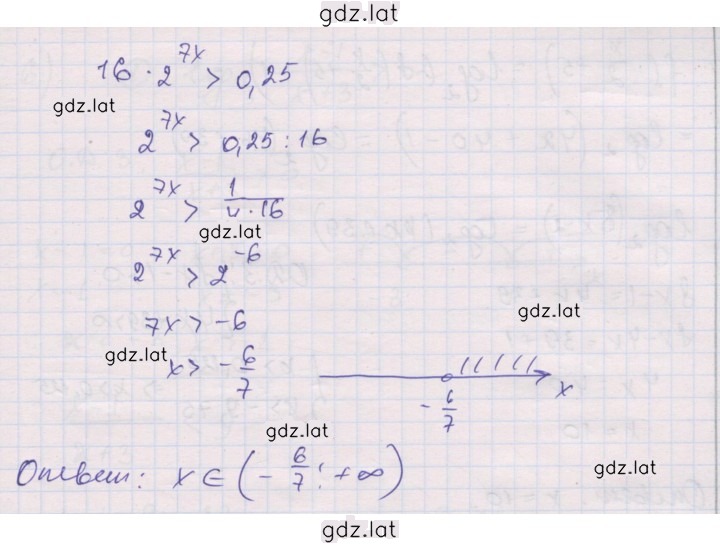 gdz.lat
16 · 2^{7x} > 0,25
gdz.lat
2^{7x} > 0,25 : 16
2^{7x} > \frac{1}{4 · 16}
gdz.lat
2^{7x} > 2^{-6}
7x > -6
gdz.lat
gdz.lat
x > -\frac{6}{7}
-\frac{6}{7} x
gdz.lat
Ответ: x ∈ (-\frac{6}{7}; +∞)
gdz.lat
gdz.lat